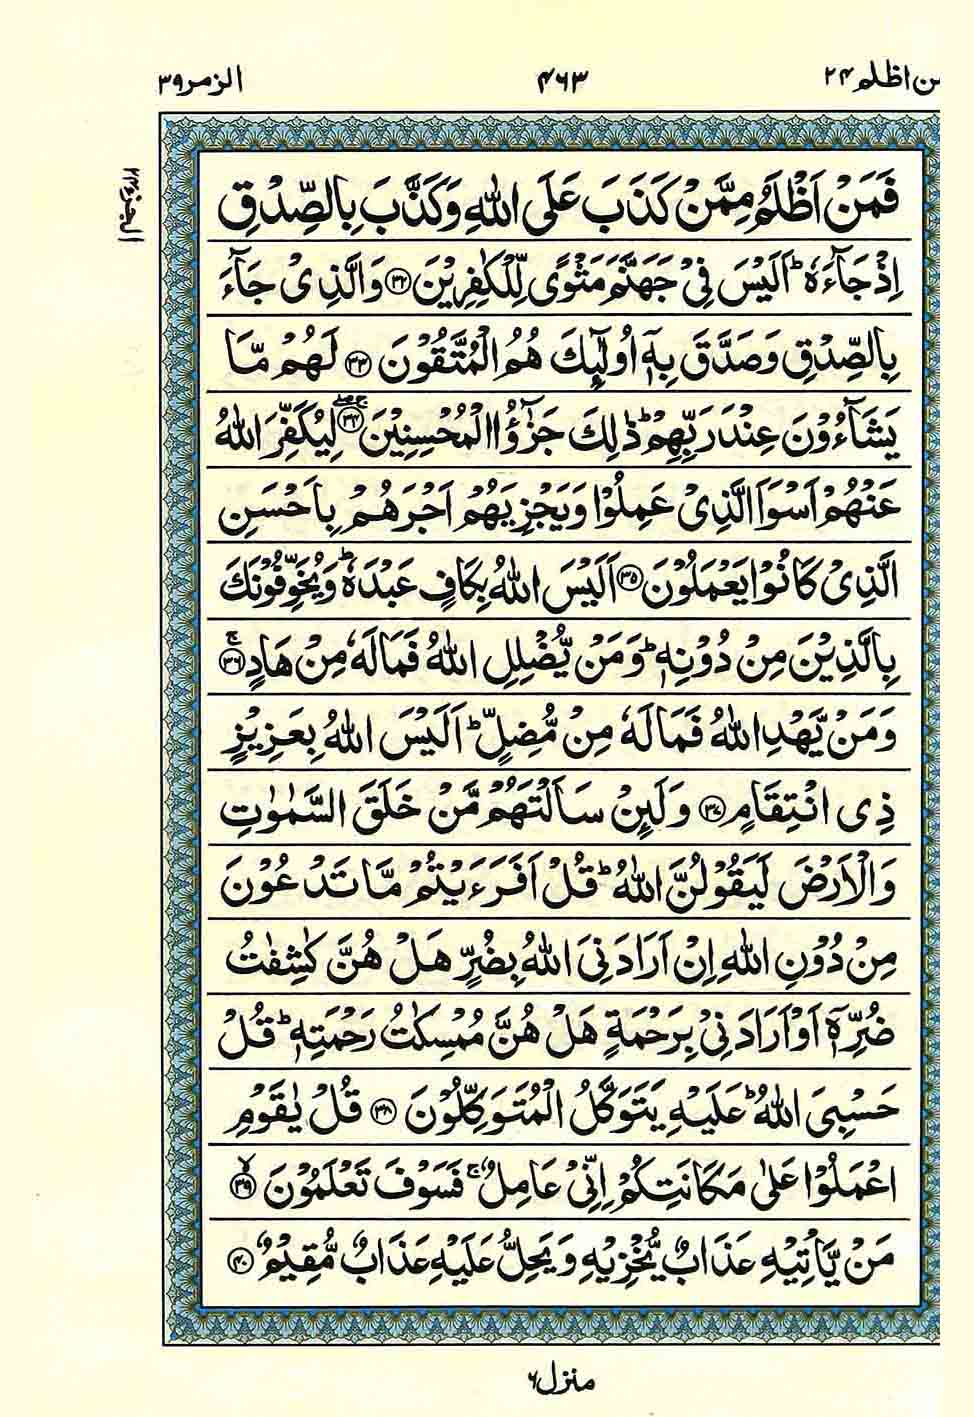 ن اظلم ۲۴
۴۶۳
الزمر ۳۹
الجزء ۲۴
فَمَنْ اَظْلَمُ مِمَّنْ كَذَبَ عَلَى اللّٰهِ وَكَذَّبَ بِالصِّدْقِ
اِذْ جَآءَهٗ ؕ اَلَيْسَ فِىْ جَهَنَّمَ مَثْوًى لِّلْكٰفِرِيْنَ ۳۲ وَالَّذِىْ جَآءَ
بِالصِّدْقِ وَصَدَّقَ بِهٖۤ اُولٰٓئِكَ هُمُ الْمُتَّقُوْنَ ۳۳ لَهُمْ مَّا
يَشَآءُوْنَ عِنْدَ رَبِّهِمْ ؕ ذٰلِكَ جَزٰٓؤُا الْمُحْسِنِيْنَ ۳۴ لِيُكَفِّرَ اللّٰهُ
عَنْهُمْ اَسْوَاَ الَّذِىْ عَمِلُوْا وَيَجْزِيَهُمْ اَجْرَهُمْ بِاَحْسَنِ
الَّذِىْ كَانُوْا يَعْمَلُوْنَ ۳۵ اَلَيْسَ اللّٰهُ بِكَافٍ عَبْدَهٗ ؕ وَيُخَوِّفُوْنَكَ
بِالَّذِيْنَ مِنْ دُوْنِهٖ ؕ وَمَنْ يُّضْلِلِ اللّٰهُ فَمَا لَهٗ مِنْ هَادٍ ۳۶ ۚ
وَمَنْ يَّهْدِ اللّٰهُ فَمَا لَهٗ مِنْ مُّضِلٍّ ؕ اَلَيْسَ اللّٰهُ بِعَزِيْزٍ
ذِى انْتِقَامٍ ۳۷ وَلَئِنْ سَاَلْتَهُمْ مَّنْ خَلَقَ السَّمٰوٰتِ
وَالْاَرْضَ لَيَقُوْلُنَّ اللّٰهُ ؕ قُلْ اَفَرَءَيْتُمْ مَّا تَدْعُوْنَ
مِنْ دُوْنِ اللّٰهِ اِنْ اَرَادَنِىَ اللّٰهُ بِضُرٍّ هَلْ هُنَّ كٰشِفٰتُ
ضُرِّهٖۤ اَوْ اَرَادَنِىْ بِرَحْمَةٍ هَلْ هُنَّ مُمْسِكٰتُ رَحْمَتِهٖ ؕ قُلْ
حَسْبِىَ اللّٰهُ ؕ عَلَيْهِ يَتَوَكَّلُ الْمُتَوَكِّلُوْنَ ۳۸ قُلْ يٰقَوْمِ
اعْمَلُوْا عَلٰى مَكَانَتِكُمْ اِنِّىْ عَامِلٌ ۚ فَسَوْفَ تَعْلَمُوْنَ ۳۹ ۙ
مَنْ يَّاْتِيْهِ عَذَابٌ يُّخْزِيْهِ وَيَحِلُّ عَلَيْهِ عَذَابٌ مُّقِيْمٌ ۴۰
منزل ۶